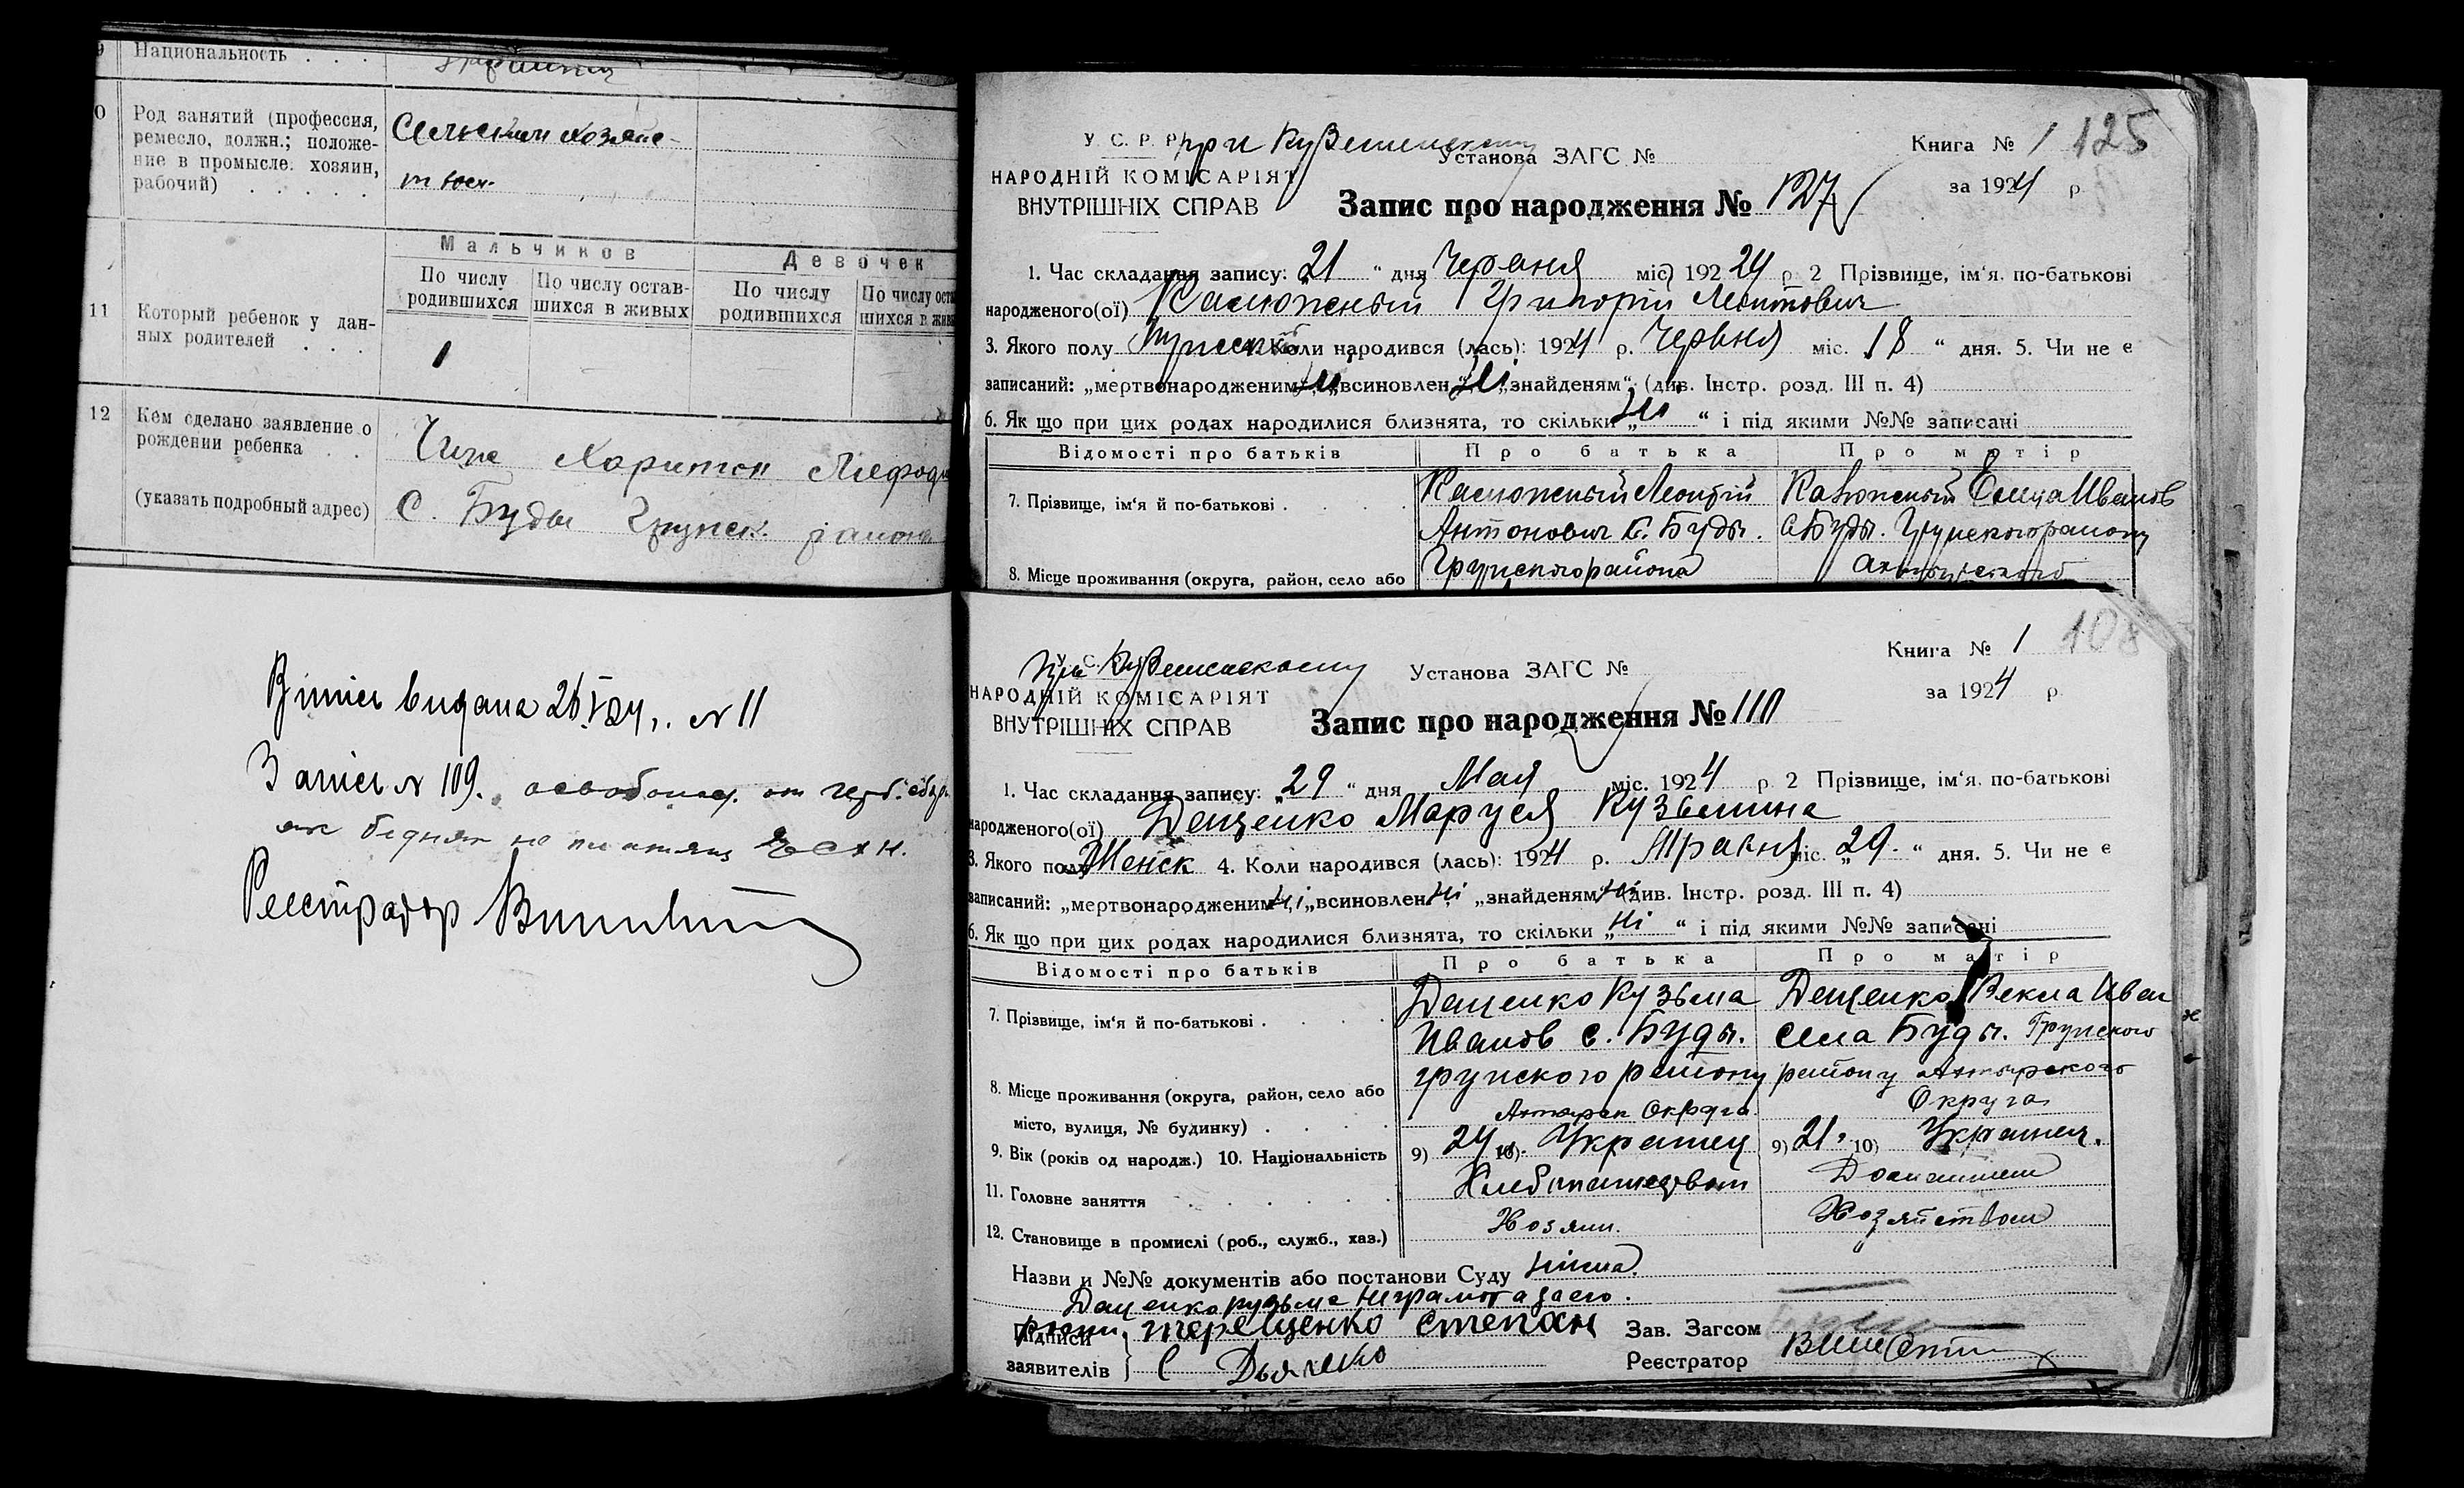 9 Национальность . . .
10 Род занятий (профессия,
ремесло, должн.; положе-
ние в промысле. хозяин,
рабочий) . . . . .
Сельским хозяйс-
твом
Мальчиков
Девочек
По числу
родившихся
По числу остав-
шихся в живых
По числу
родившихся
По числу оста
шихся в жив
11 Который ребенок у дан-
ных родителей . . .
1
12 Кем сделано заявление о
рождении ребенка . .
(указать подробный адрес)
Харитон
С. Буды Грунск. района
Випись видана 26 V 24 г. N 11
Запись N 109.
Реєстратор
У. С. Р. Р. при
Установа ЗАГС №
Книга № 1 125
НАРОДНІЙ КОМІСАРІЯТ
ВНУТРІШНІХ СПРАВ
за 1924 р.
Запис про народження № 127
1. Час складання запису: „21“ дня Червня міс) 1924 р 2 Прізвище, ім‘я. по-батькові
народженого(ої) Калюжный Григорій Леонтович
3. Якого полу Мужеск. 4. Коли народився (лась): 1924 р. Червня міс. „18“ дня. 5. Чи не є
записаний: „мертвонародженим“ ні, „всиновлен“ ні, „знайденям“ (див. Інстр. розд. III п. 4)
6. Як що при цих родах народилися близнята, то скільки „ні“ і під якими №№ записані
Відомості про батьків Про батька Про матір
7. Прізвище, ім‘я й по-батькові . . . . Калюжный Леонтій Калюжный Іванов
Антонович с. Буды. с Буды. Грунского району
8. Місце проживання (округа, район, село або Грунского района
Установа ЗАГС №
Книга № 1 108
НАРОДНІЙ КОМІСАРІЯТ
ВНУТРІШНІХ СПРАВ
за 1924 р.
Запис про народження № 110
1. Час складання запису: „29“ дня Мая міс. 1924 р 2 Прізвище, ім‘я. по-батькові
народженого(ої) Деценко Маруся Кузьмина
3. Якого полу Женск 4. Коли народився (лась): 1924 р. Травня міс. „29.“ дня. 5. Чи не є
записаний: „мертвонародженим“ ні, „всиновлен“ ні, „знайденям“ ні (див. Інстр. розд. III п. 4)
6. Як що при цих родах народилися близнята, то скільки „ні“ і під якими №№ записані
Відомості про батьків Про батька Про матір
7. Прізвище, ім‘я й по-батькові . . . . Деценко Кузьма Деценко Векла Иван
Иванов с. Буды. села Буды. Грунского
8. Місце проживання (округа, район, село або грунского району району Ахтырского
місто, вулиця, № будинку) . . . . Ахтырск Округа Округа
9. Вік (років од народж.) 10. Національність 9) 24 10) Украинец 9) 21 10) Украинец.
11. Головне заняття . . . . . Хлебопашеством Домашнем
12. Становище в промислі (роб., служб., хаз.) Хозяин. Хозяйством
Назви и №№ документів або постанови Суду нима.
Деценко Кузьма неграмот а за его
Підписи заявителів } Терещенко Степан Зав. Загсом
С Дьяченко Реєстратор